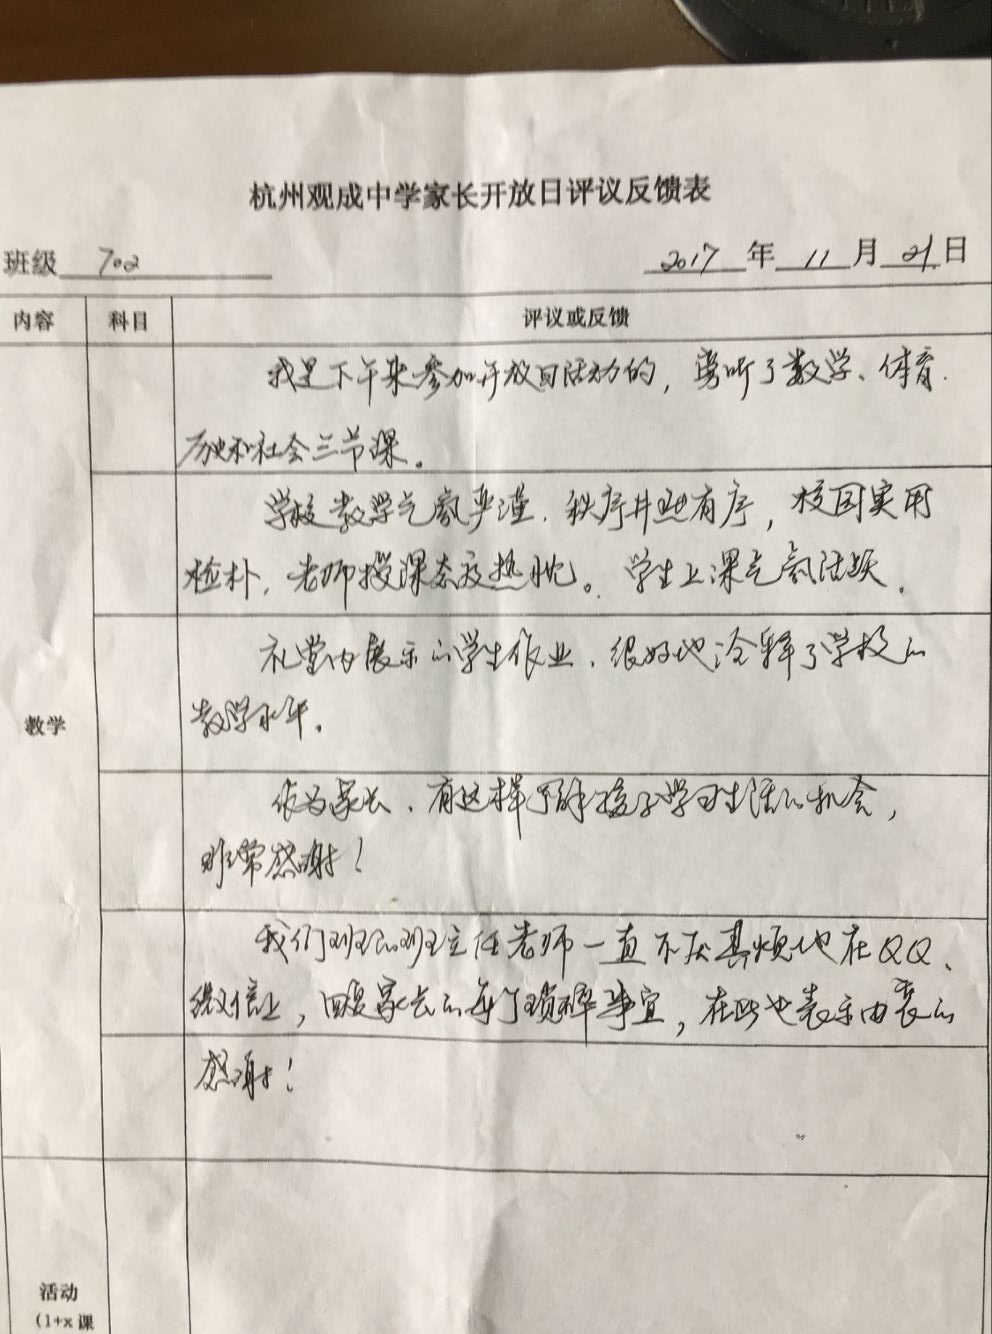 杭州观成中学家长开放日评议反馈表
班级 702 2017 年 11 月 21 日
内容 科目 评议或反馈
我是下午来参加开放日活动的，旁听了数学、体育.
历史和社会三节课。
学校教学气氛严谨.秩序井然有序，校园实用
检朴，老师授课态度热忱。学生上课气氛活跃.
礼堂内展示的学生作业.很好地诠释了学校的
教学水平.
教学
作为家长.有这样了解孩子学习生活的机会，
非常感谢！
我们班的班主任老师一直不厌其烦地在QQ、
微信上，回复家长的每个琐碎事宜，在此也表示由衷的
感谢！
活动
(1+x 课